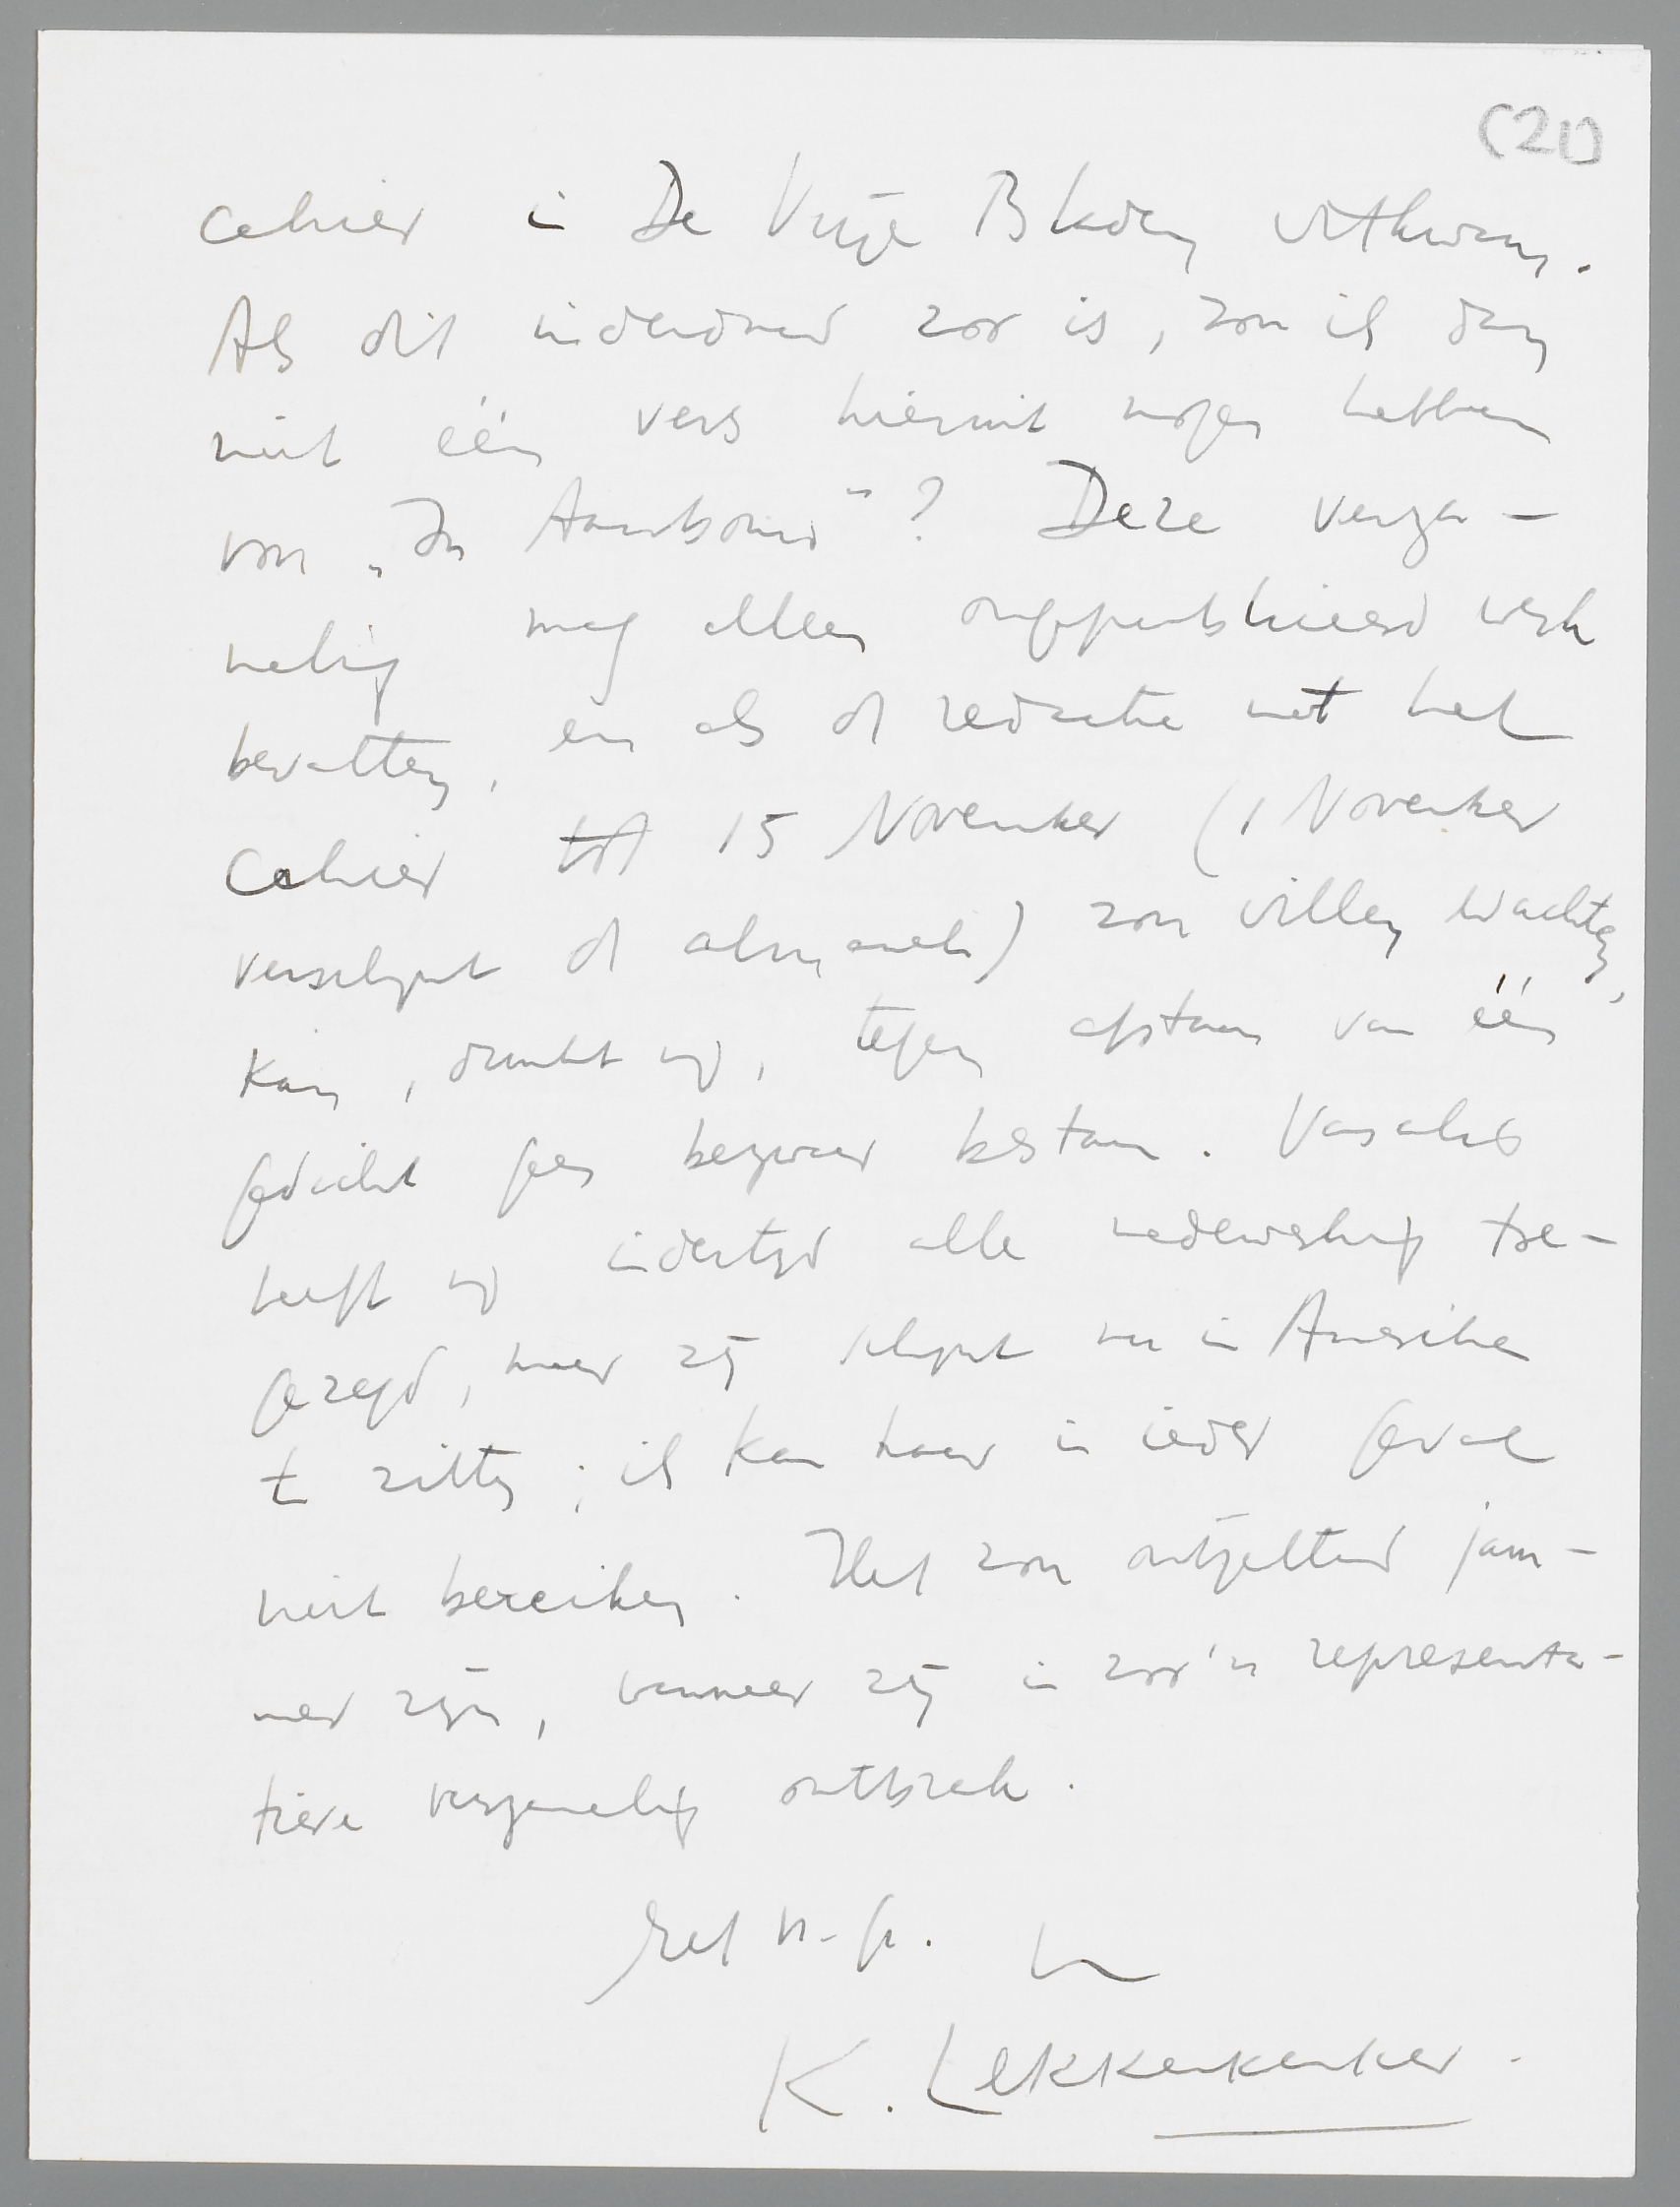 (21)
cahier in De Vrije Bladen uitkwam.
Als dit inderdaad zoo is, zou ik dan
niet één vers hieruit mogen hebben
voor „In Aanbouw"? Deze verza-
meling mag alleen ongepubliceerd werk
bevatten, en als de redactie met het
Cahier tot 15 November (1 November
verschijnt de almanak) zou willen wachten,
kan, dunkt mij, tegen afstaan van één
gedicht geen bezwaar bestaan. Vasalis
heeft mij indertijd alle medewerking toe-
gezegd, maar zij schijnt nu in Amerika
te zitten; ik kan haar in ieder geval
niet bereiken. Het zou ontzettend jam-
mer zijn, wanneer zij in zoo'n representa-
tieve verzameling ontbrak.
Met vr. gr.
K. Lekkerkerker.